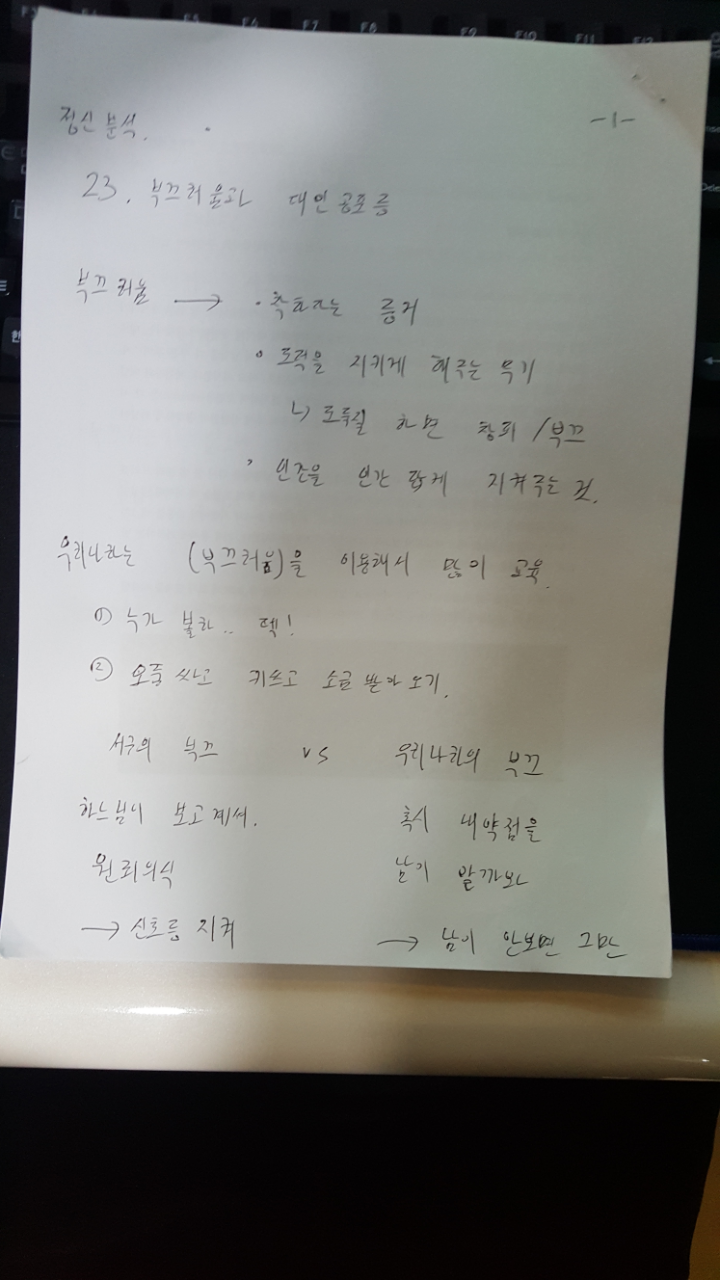 정신분석. -1-
23. 부끄러움과 대인공포증
부끄러움 → · 증거
· 도덕을 지키게 해주는 무기
↳ 도둑질 하면 창피 / 부끄
· 인간을 인간 답게 지켜주는 것.
우리나라는 (부끄러움)을 이용해서 많이 교육.
① 누가 볼라.. 떽!
② 오줌 싸고 키쓰고 소금 받아 오기.
서구의 부끄 vs 우리나라의 부끄
하느님이 보고 계셔. 혹시 내약점을
원죄의식 남이 알까봐
→ 신호등 지켜 → 남이 안보면 그만